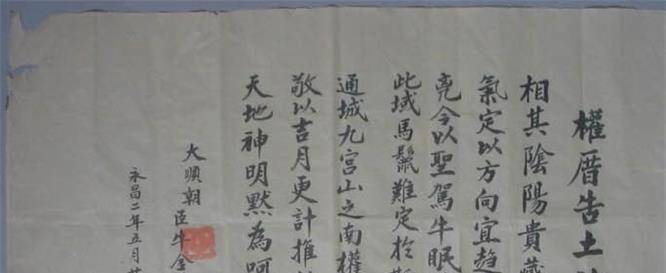 權厝告土
相其陰陽貴藏
氣定以方向宜趋
堯今以聖駕牛眠
此域馬鬛難定於
通城九宮山之南權
敬以吉月更計推
天地神明默為呵
大順朝臣牛金
永昌二年五月